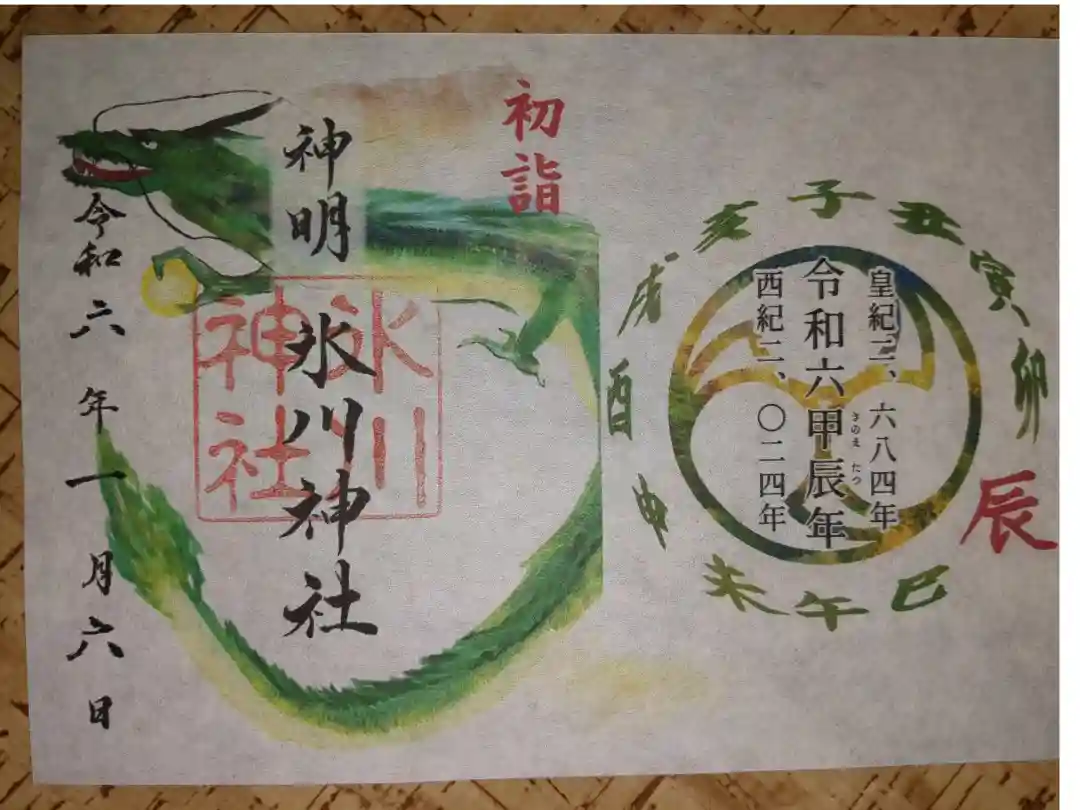 子
丑
寅
卯
辰
巳
午
未
申
酉
戌
亥
皇紀二、六八四年
令和六甲辰年
きのえ たつ
西紀二、〇二四年
初詣
神明
氷川神社
氷川
神社
令和六年一月六日